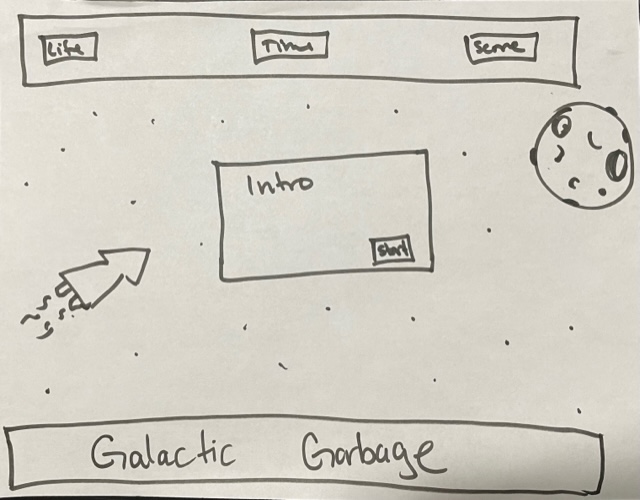 Life Time Score
Intro
Start
Galactic Garbage